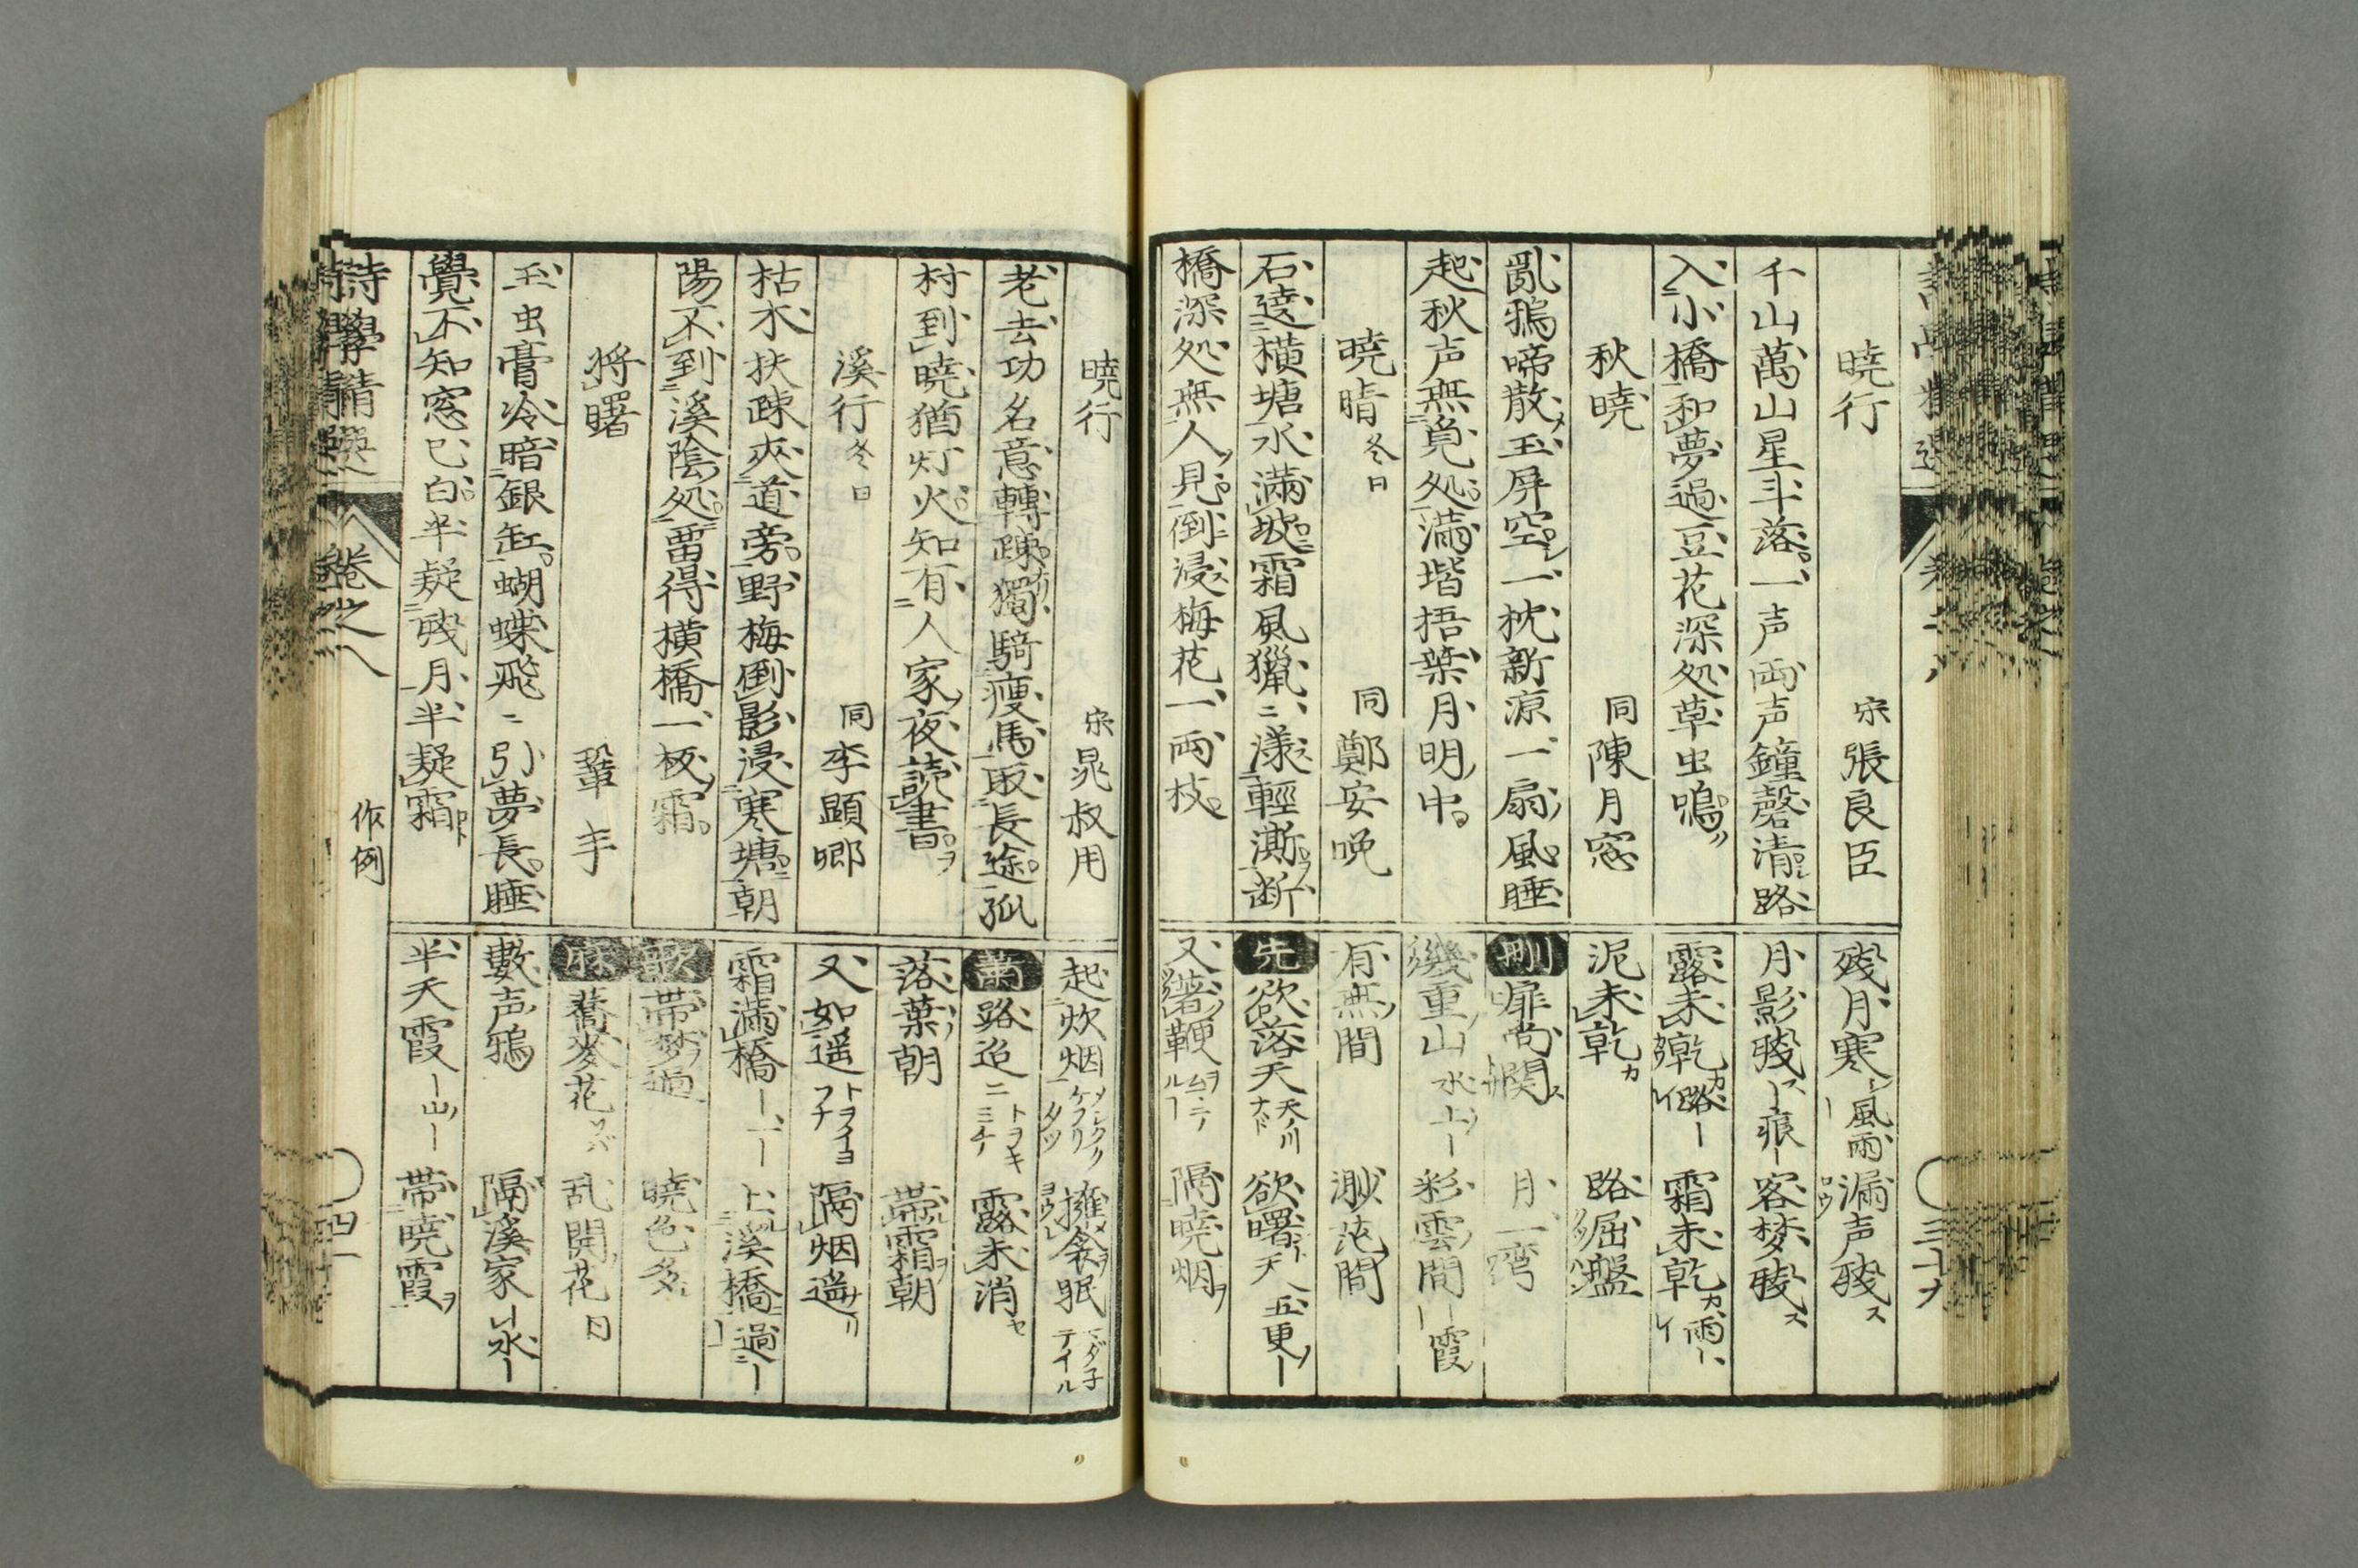 暁行 宋 張良臣
千山萬山星斗落一声両声鐘磬清路
入小橋和夢過豆花深処草虫鳴
秋暁 同 陳月窓
亂鴉啼散玉屏空一枕新凉一扇風睡
起秋声無覓処満堦梧葉月明中
暁晴冬日 同 鄭安晩
石遶横塘水満坡霜風獵〻漾輕澌断
橋深処無人見倒浸梅花一両枝
残月寒 風雨 漏声残ス
月影残ス 痕 客梦残ス
露未乾カ 路 霜未乾カ 雨
泥未乾カ 路屈盤
刪 扉尚関 月一湾
幾重山 水 彩雲間 霞
有無間 渺茫間
先 欲落天 天川ナド 欲曙天 五更
又著鞭 隔暁烟
暁行 宋 晁叔用
老去功名意轉疎獨騎痩馬取長途孤
村到暁猶灯火知有人家夜読書
溪行冬日 同 李顕卿
枯木扶疎夾道旁野梅倒影浸寒塘朝
陽不到溪陰処畱得横橋一板霜
将曙 鞏丰
玉虫膏冷暗銀缸蝴蝶飛〻引夢長睡
覺不知窓已白半疑残月半疑霜
詩學精選 卷之八 作例
起炊烟 擁衾眠
蕭 路迢〻 トヲキミチ 露未消セ
落葉朝 帯霜朝
又如遥 隔烟遥
霜満橋 上溪橋 過
歌 帯梦過 暁色多
麻 蕎麥花 乱開花
數声鴉 隔溪家 水
半天霞 山 帯暁霞